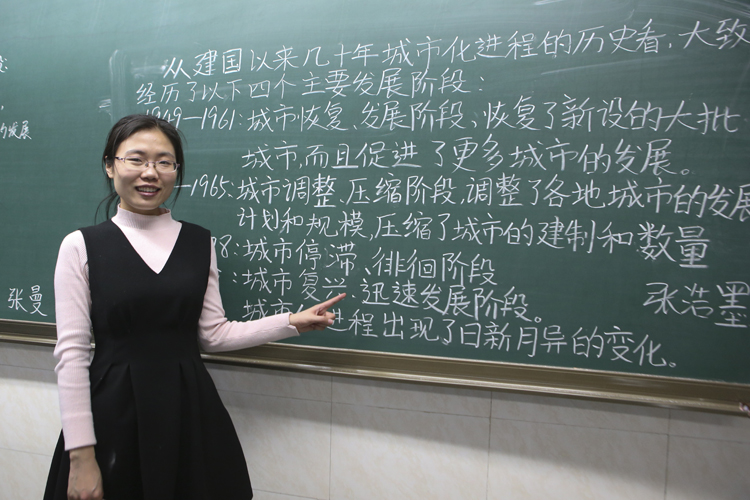 从建国以来几十年城市化进程的历史看,大致
经历了以下四个主要发展阶段:
1949—1961:城市恢复、发展阶段,恢复了新设的大批
城市,而且促进了更多城市的发展。
—1965:城市调整、压缩阶段,调整了各地城市的发展
计划和规模,压缩了城市的建制和数量
78:城市停滞、徘徊阶段
:城市复兴、迅速发展阶段。
城市 进程出现了日新月异的变化。
的发展
张曼
张浩墨